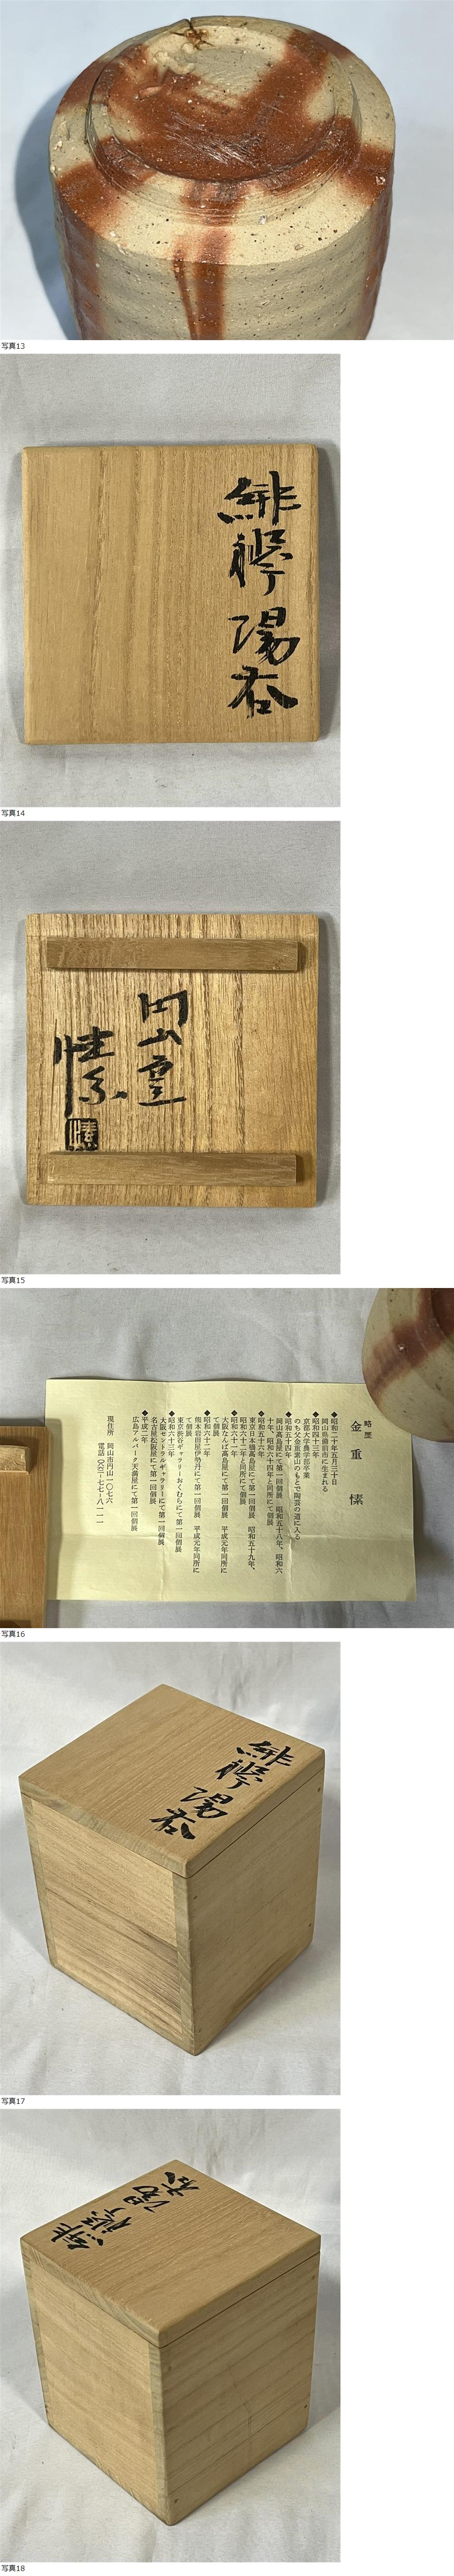 写真13
緋襷 湯呑
写真14
円山 重
愫
愫
写真15
略歴
金重 愫
◆昭和二十年五月三十日
岡山県備前市に生まれる
◆昭和四十三年
京都大学農学部卒業
のち父金重素山のもとで陶芸の道に入る
◆昭和五十四年
岡山高島屋にて第一回個展 昭和五十八年、昭和六
十年、昭和六十四年と同所にて個展
◆昭和五十六年
東京日本橋高島屋にて第一回個展 昭和五十九年、
昭和六十二年と同所にて個展
◆昭和六十一年
大阪なんば高島屋にて第一回個展 平成元年同所に
て個展
◆昭和六十二年
熊本岩田屋伊勢丹にて第一回個展 平成元年同所に
て個展
東京渋谷ギャラリーおくむらにて第一回個展
◆昭和六十三年
大阪セントラルギャラリーにて第一回個展
名古屋松坂屋にて第一回個展
◆平成二年
広島アルパーク天満屋にて第一回個展
現住所 岡山市円山一〇七六
写真16
緋襷 湯呑
写真17
緋襷 湯呑
写真18